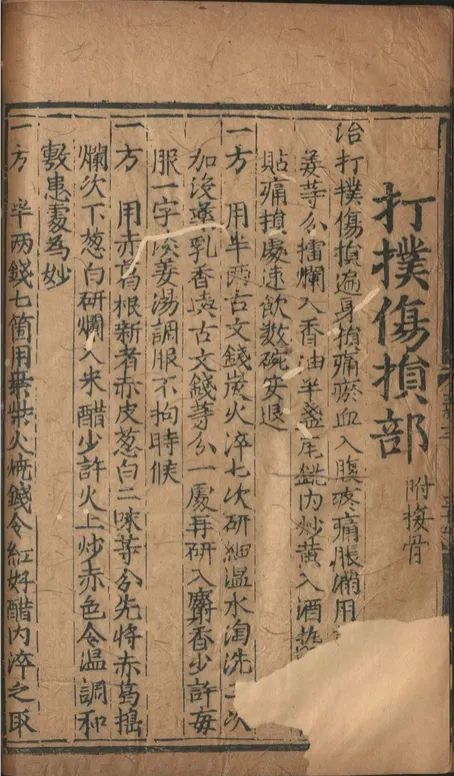 打撲傷損部 附接骨
治打撲傷損遍身損痛瘀血入腹疼痛脹滿用
姜等分擂爛入香油半盞瓦銚內炒黃入酒
貼痛損處速飲數碗安退
一方 用半兩古文錢炭火淬七次研細温水淘洗二次
加沒藥乳香與古文錢等分一處再研入麝香少許每
服一字咬姜湯調服不拘時候
一方 用赤葛根新者赤皮葱白二味等分先將赤葛搗
爛次下葱白研爛入米醋少許火上炒赤色令温調和
敷患處為妙
一方 半兩錢七箇用栗柴火燒錢令紅好醋內淬之取